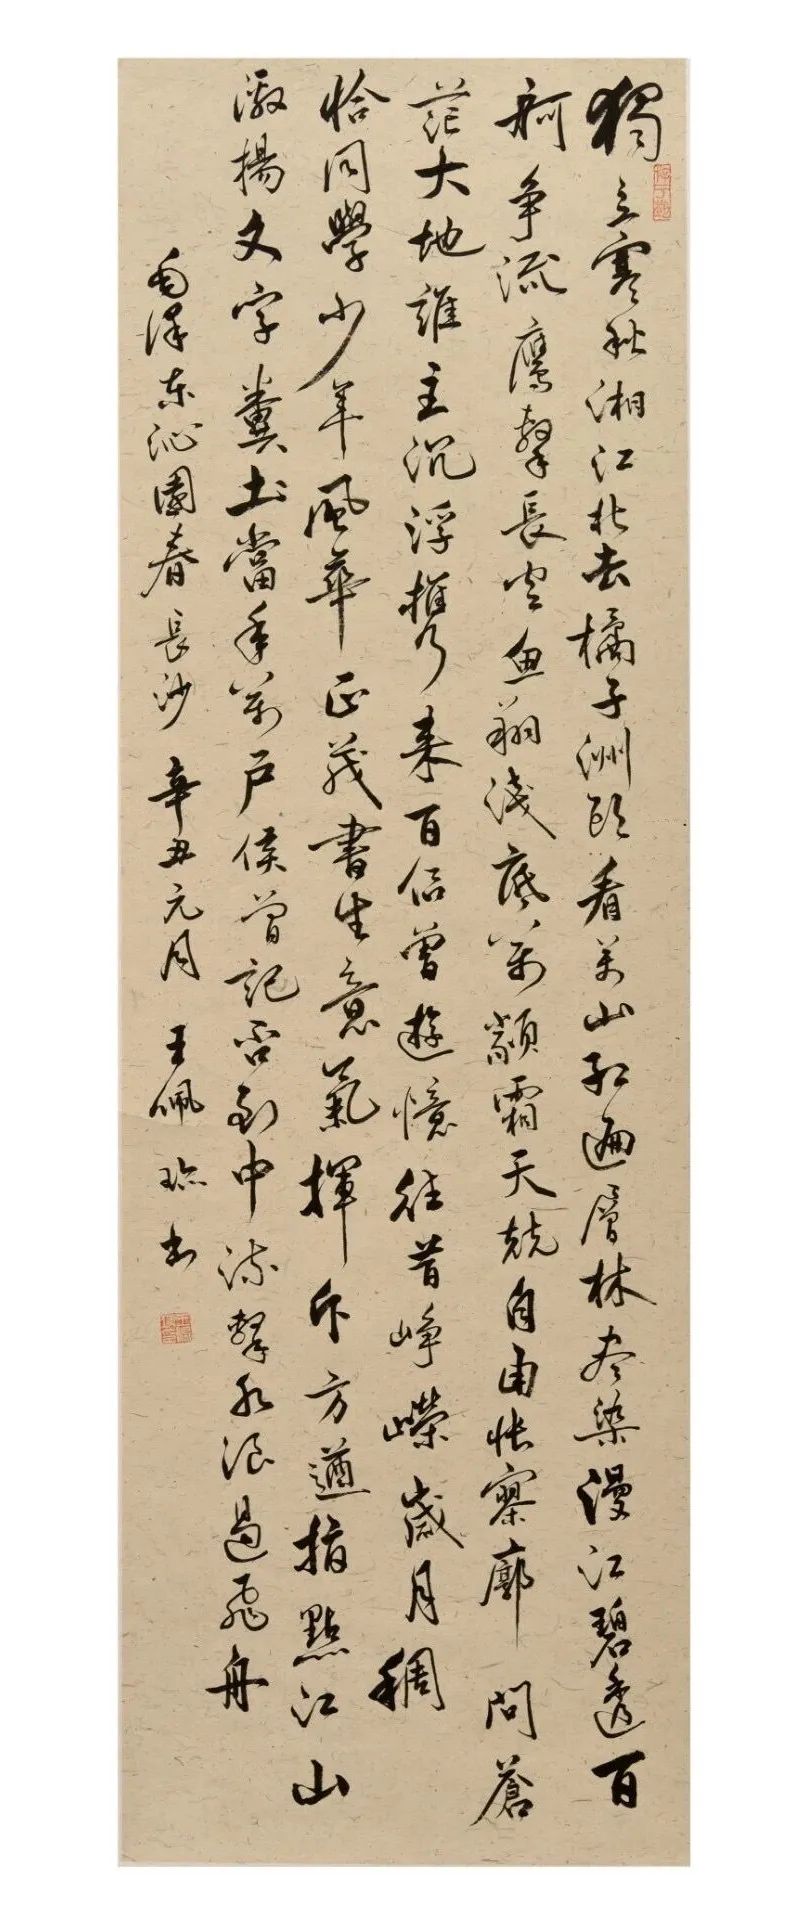 獨立寒秋湘江北去橘子洲頭看萬山紅遍層林盡染漫江碧透百
舸争流鷹擊長空魚翔淺底萬類霜天競自由悵寥廓問蒼
茫大地誰主沉浮攜來百侣曾遊憶往昔崢嶸歲月稠
恰同學少年風華正茂書生意氣揮斥方遒指點江山
激揚文字糞土當年萬户侯曾記否到中流擊水浪遏飛舟
毛澤東沁園春長沙 辛丑元月 王佩 書